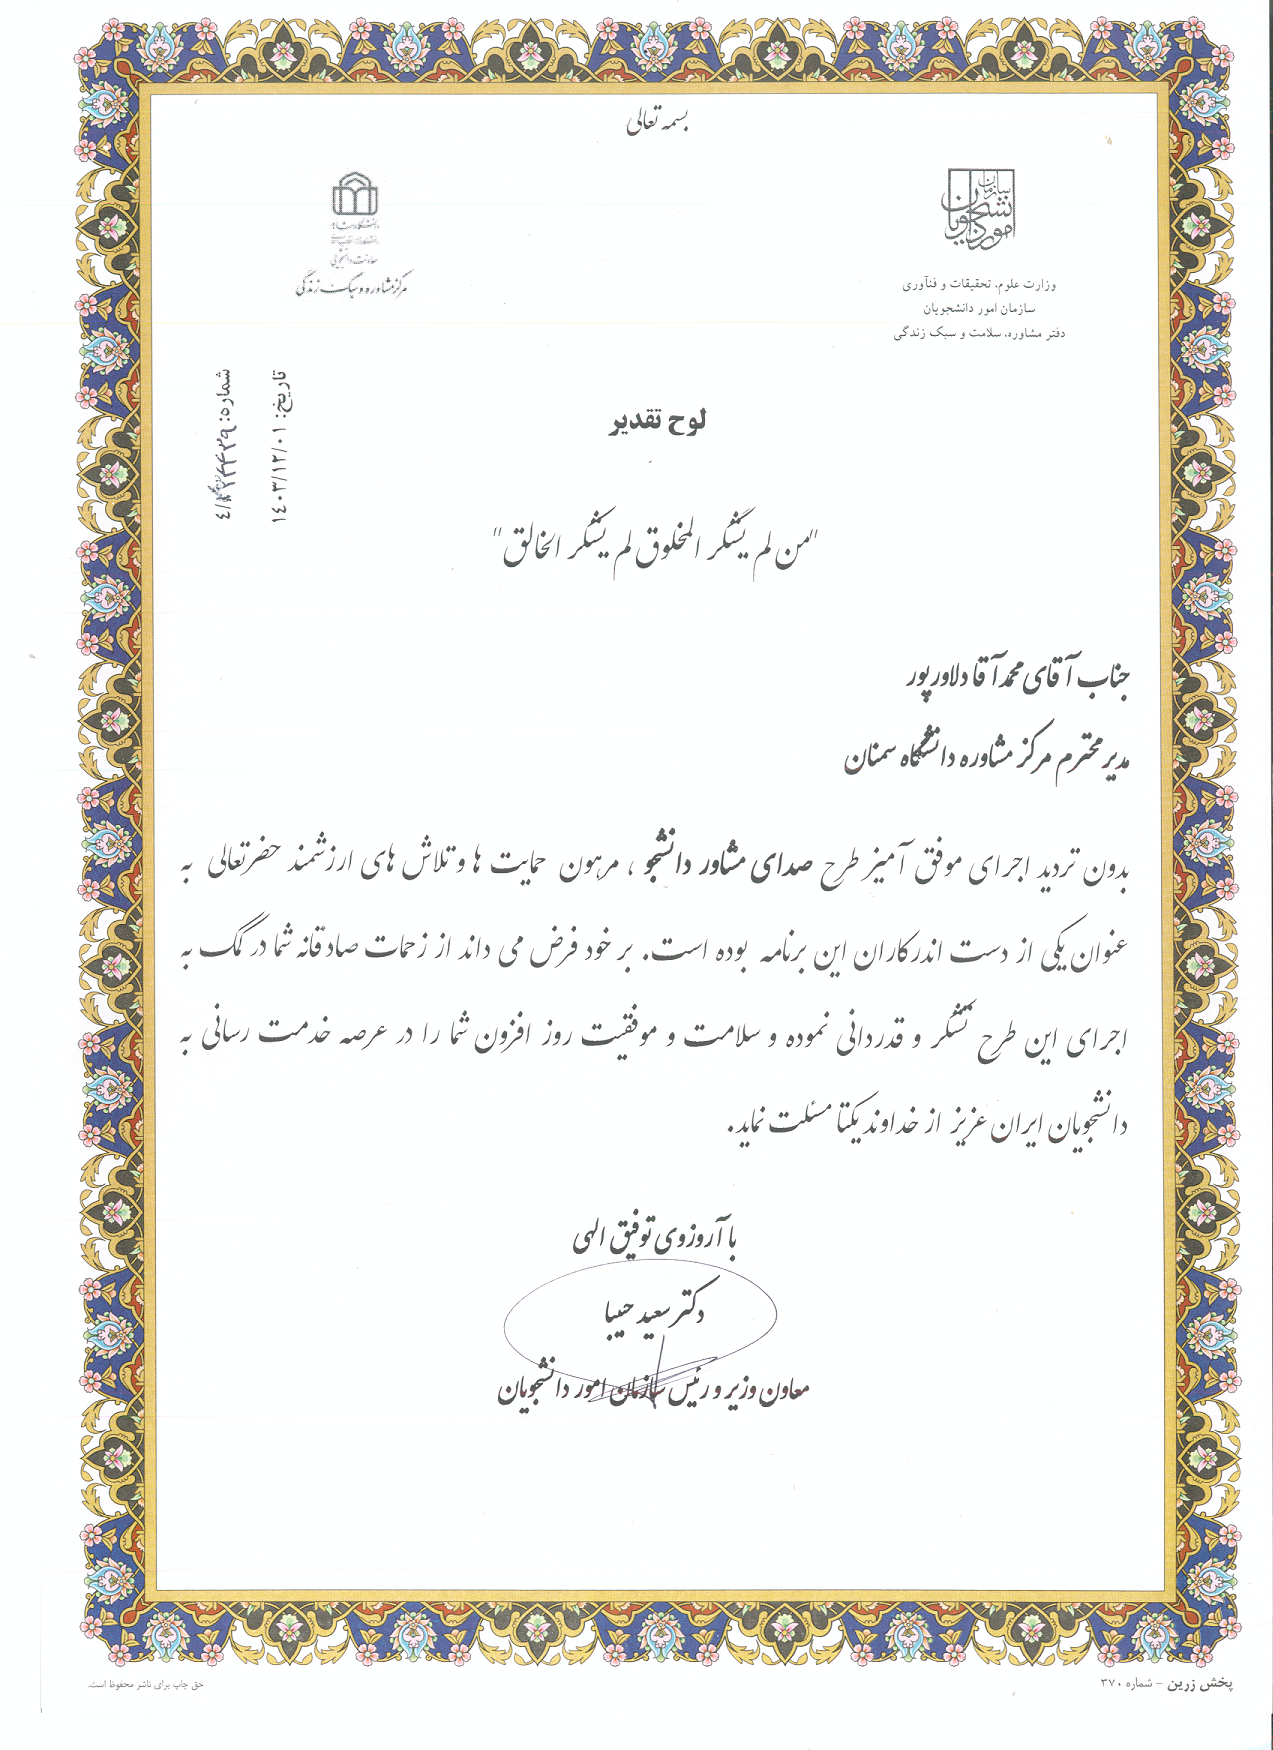 بسمه تعالی
سازمان امور دانشجویان
وزارت علوم، تحقیقات و فنآوری
سازمان امور دانشجویان
دفتر مشاوره، سلامت و سبک زندگی
معاونت دانشجویی
مرکز مشاوره و سبک زندگی
تاریخ: ۱۴۰۳/۱۲/۰۱
شماره:
لوح تقدیر
"من لم یشکر المخلوق لم یشکر الخالق"
جناب آقای محمد آقا دلاورپور
مدیر محترم مرکز مشاوره دانشگاه سمنان
بدون تردید اجرای موفق آمیز طرح صدای مشاور دانشجو ، مرهون حمایت ها و تلاش های ارزشمند حضرتعالی به
عنوان یکی از دست اندرکاران این برنامه بوده است. بر خود فرض می داند از زحمات صادقانه شما در کمک به
اجرای این طرح تشکر و قدردانی نموده و سلامت و موفقیت روز افزون شما را در عرصه خدمت رسانی به
دانشجویان ایران عزیز از خداوند یکتا مسئلت نماید.
با آروزوی توفیق الهی
دکتر سعید حبیبا
معاون وزیر و رئیس سازمان امور دانشجویان
پخش زرین - شماره ۳۷۰
حق چاپ برای ناشر محفوظ است.